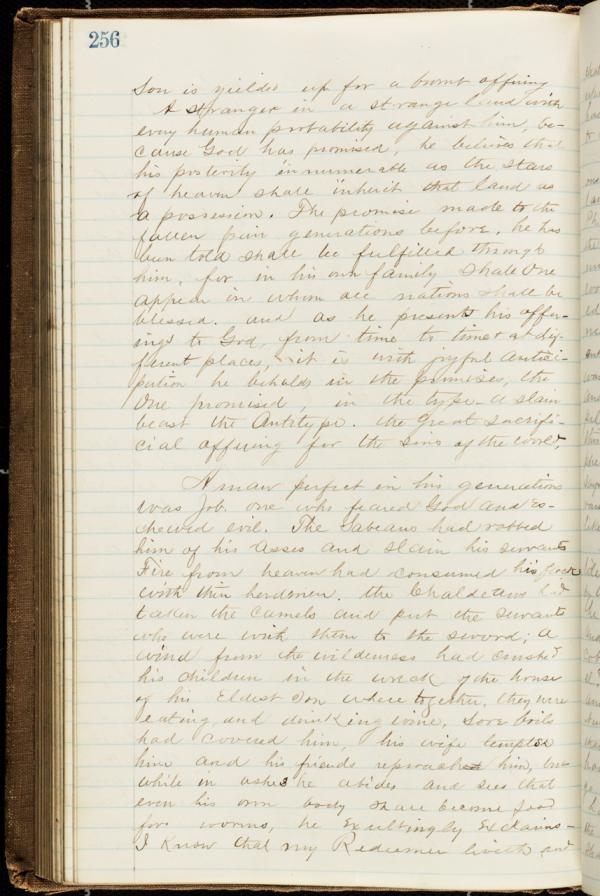 256
Son is yielded up for a burnt offering
A stranger in a strange land with
every human probability against him, be-
cause God has promised, he believes that
his posterity innumerable as the stars
of heaven shall inherit that land as
a possession. The promise made to the
fallen pair generations before, he has
been told shall be fulfilled through
him, for in his own family shall One
appear in whom all nations shall be
blessed. and as he presents his offer-
ings to God, from time to time & at dif-
ferent places, it is with joyful antici-
pation he beholds in the promises, the
One promised, in the type - a slain
beast the Antitype. the great sacrifi-
cial offering for the sins of the world.
A man perfect in his generations
was Job. one who feared God and es-
chewed evil. The Sabeans had robbed
him of his asses and slain his servants
Fire from heaven had consumed his flock
with their herdsmen. the Chaldeans had
taken the camels and put the servants
who were with them to the sword; a
wind from the wilderness had crushed
his children in the wreck of the house
of his Eldest Son where together, they were
eating and drinking wine, Sore boils
had covered him, his wife tempted
him and his friends reproached him, but
while in ashes he abides and sees that
even his own body shall become food
for worms, he Exultingly Exclaims -
I Know that my Redeemer liveth and